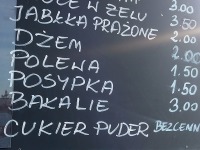 W ŻELU 3.00
JABŁKA PRAŻONE 3,50
DŻEM 2.00
POLEWA 2.00
POSYPKA 1.50
BAKALIE 3,00
CUKIER PUDER BEZCENNY